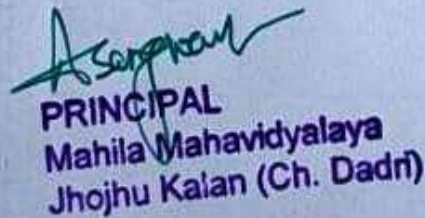 PRINCIPAL
Mahila Mahavidyalaya
Jhojhu Kalan (Ch. Dadri)